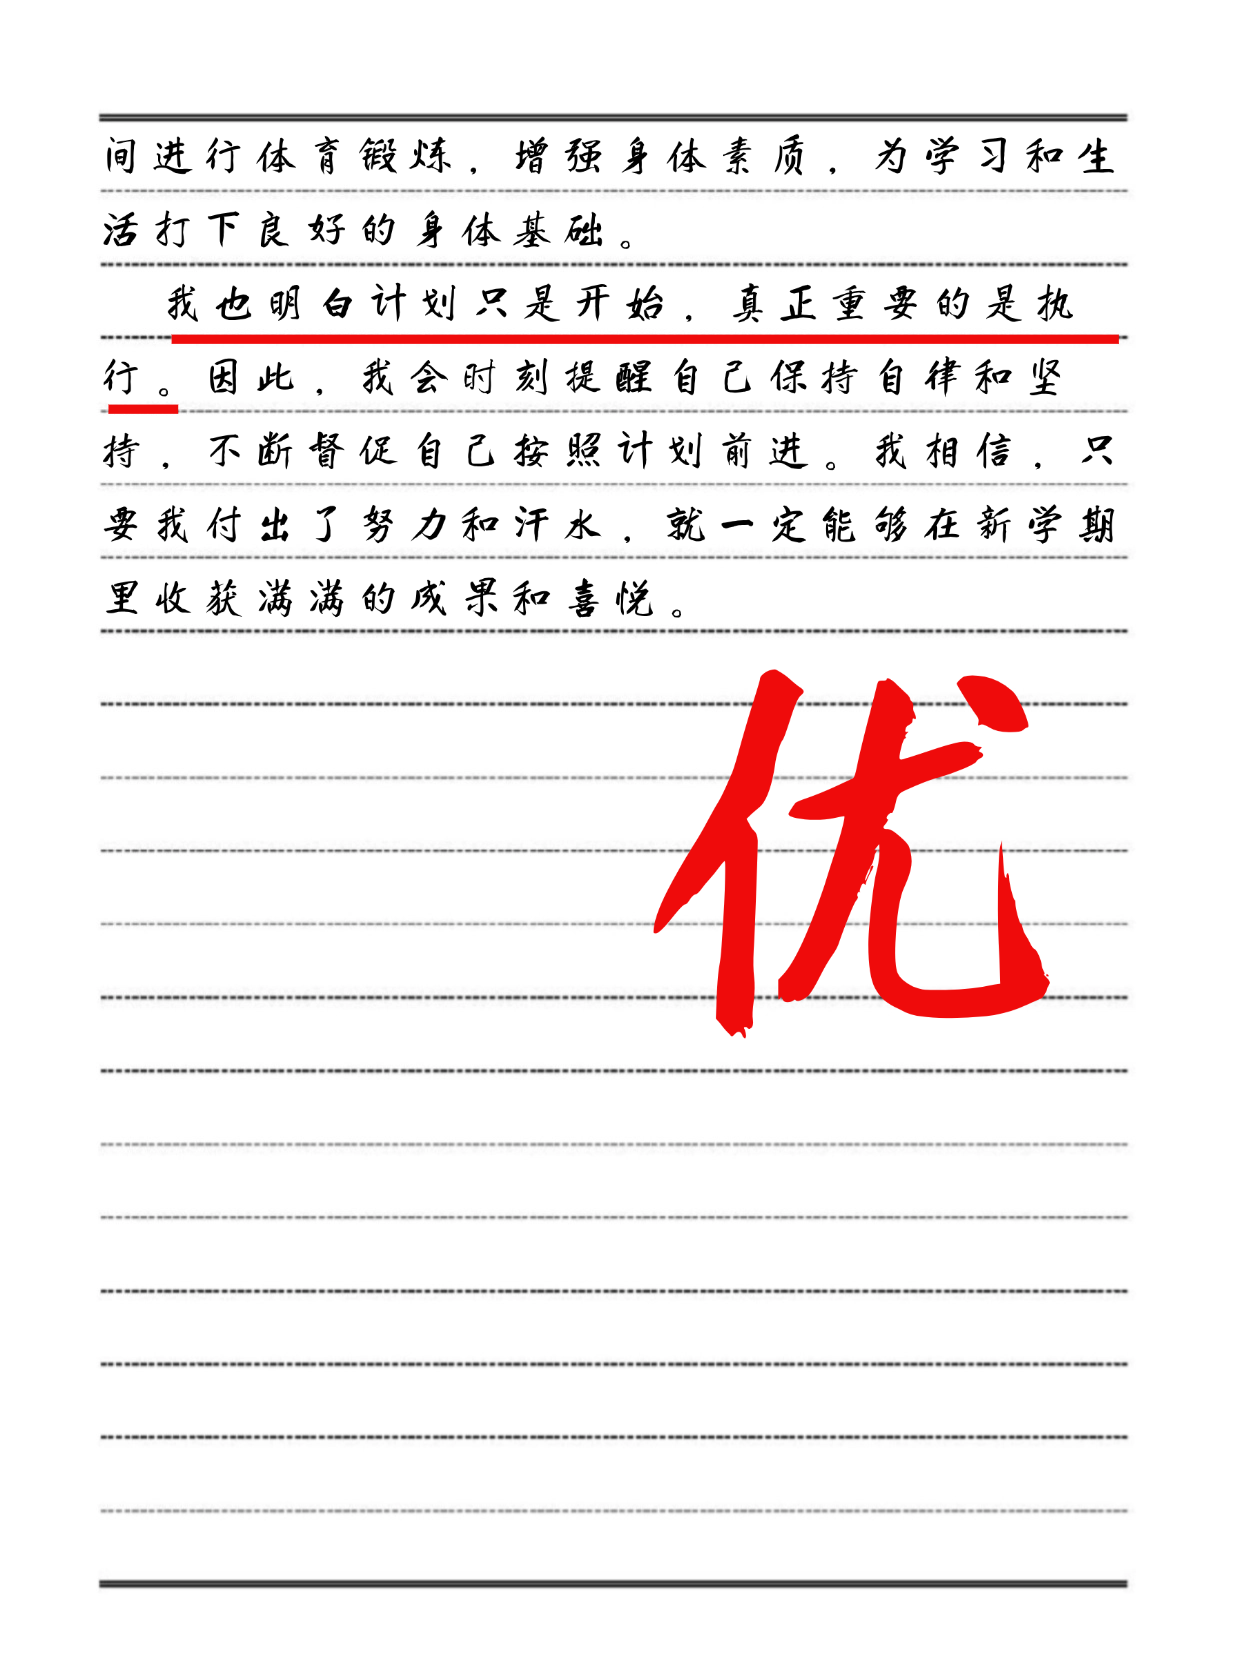 间进行体育锻炼，增强身体素质，为学习和生
活打下良好的身体基础。
我也明白计划只是开始，真正重要的是执
行。因此，我会时刻提醒自己保持自律和坚
持，不断督促自己按照计划前进。我相信，只
要我付出了努力和汗水，就一定能够在新学期
里收获满满的成果和喜悦。
优